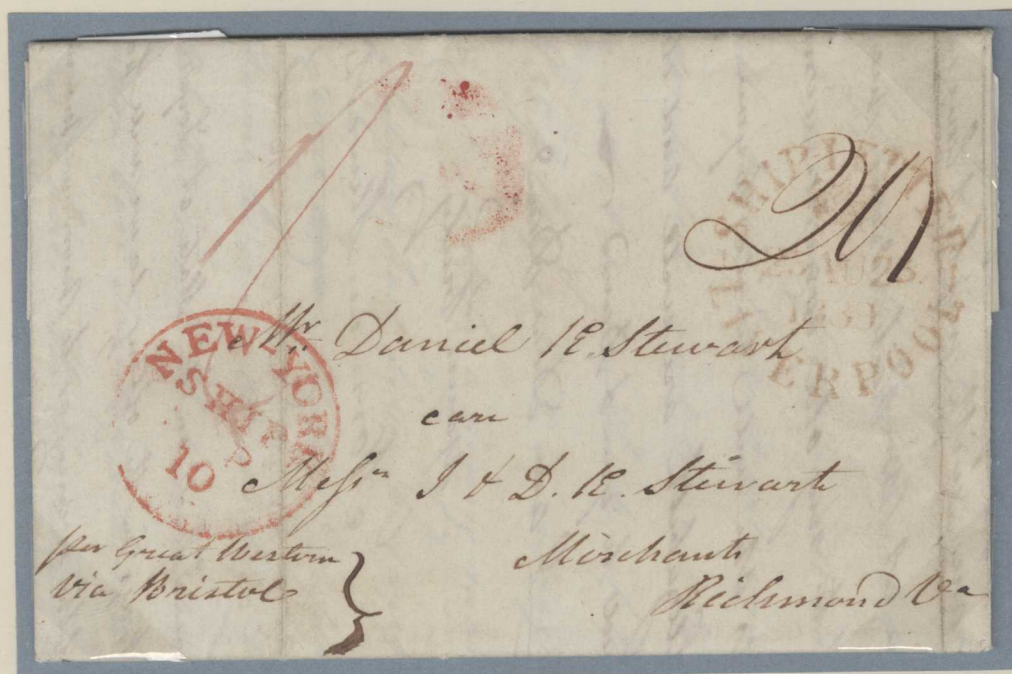 SHIP LETTER
LIVERPOOL
20
NEW-YORK
SHIP
10
Mr. Daniel K. Stewart
care
Messrs J & D. K. Stewart
Merchants
Richmond Va
per Great Western
via Bristol